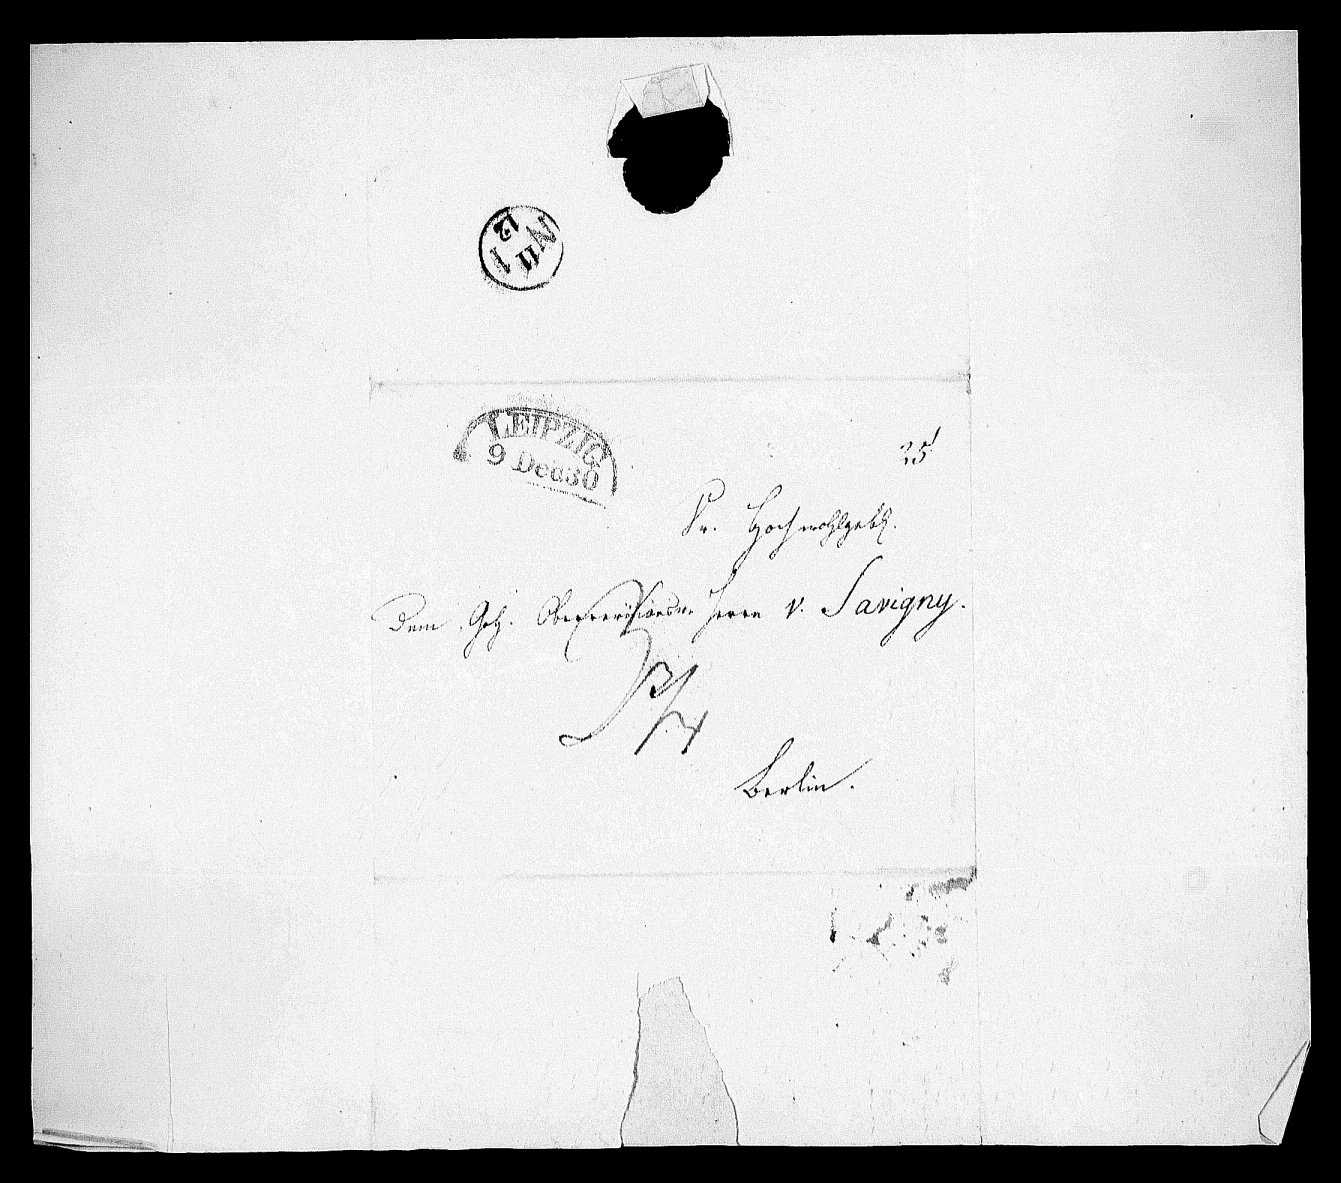 N
11 1
12
LEIPZIG
9 Dec 30
25
Sr. Hochwohlgeb.
Dem Geh. Oberrevisionsr. Herrn v. Savigny.
Berlin.